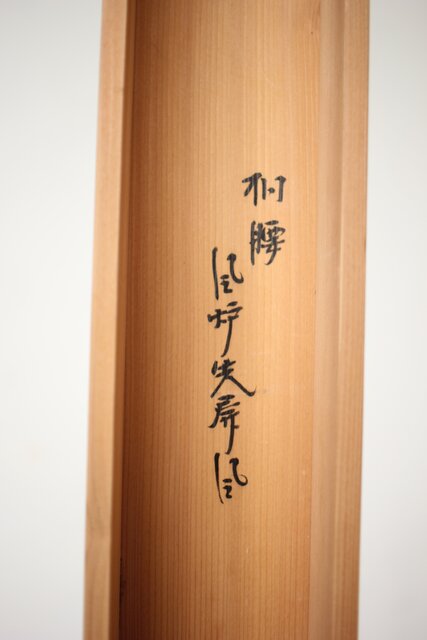 桐腰
風炉先屏風